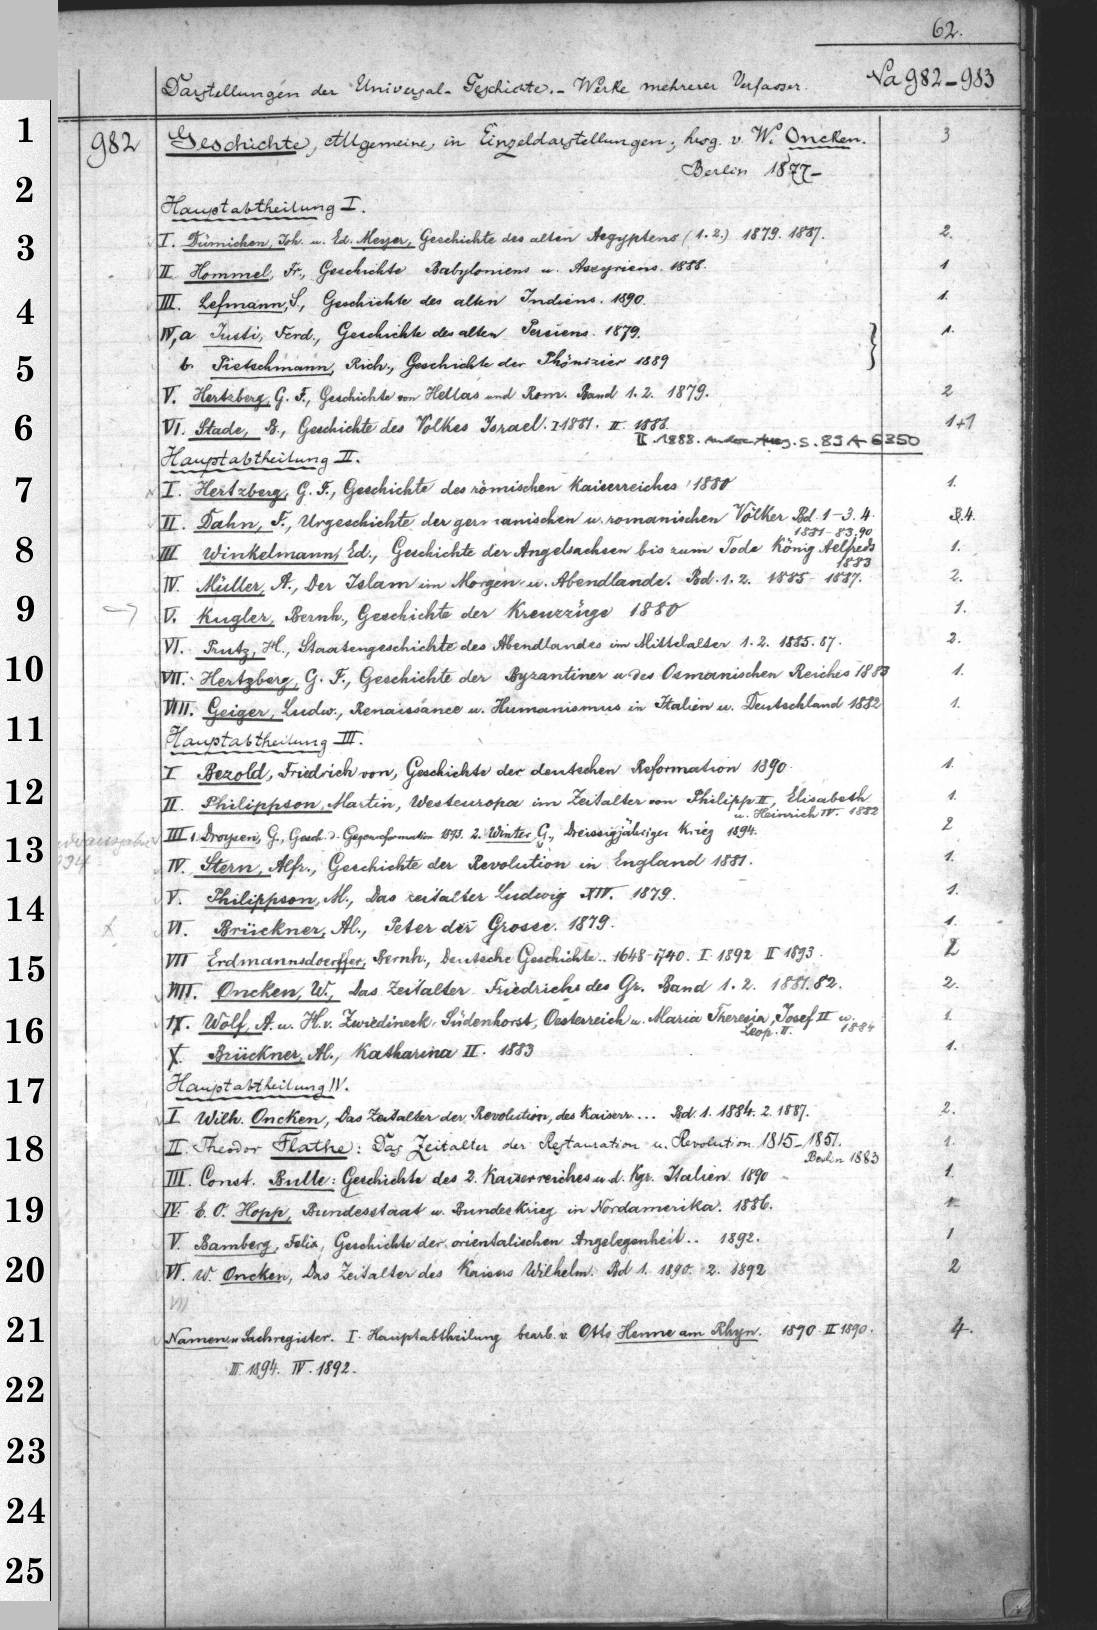 62.
Darstellungen der Universal-Geschichte.- Werke mehrerer Verfasser. Na 982-983
1
982 Geschichte, Allgemeine, in Einzeldarstellungen; hrsg. v. W. Oncken. 3
Berlin 1877-
2
Hauptabtheilung I.
3
I. Dümichen, Joh. u. Ed. Meyer, Geschichte des alten Aegyptens (1.2.) 1879. 1887. 2.
II. Hommel, Fr., Geschichte Babyloniens u. Assyriens. 1888. 1
4
III. Lefmann, S., Geschichte des alten Indiens. 1890. 1.
IV,a Justi, Ferd., Geschichte des alten Persiens. 1879. } 1.
5
b. Pietschmann, Rich., Geschichte der Phönizier 1889
V. Hertzberg, G. F., Geschichte von Hellas und Rom. Band 1. 2. 1879. 2
6
VI. Stade, B., Geschichte des Volkes Israel. I 1881. II. 1888. 1+1
II 1888. Ausg. s. 89 A 6350
Hauptabtheilung II.
7
I. Hertzberg, G. F., Geschichte des römischen Kaiserreiches 1880 1.
II. Dahn, F., Urgeschichte der germanischen u. romanischen Völker Bd. 1-3. 4. 3.4.
1881-83.90
8
III Winkelmann, Ed., Geschichte der Angelsachsen bis zum Tode König Aelfreds 1.
1883
IV. Müller, A., Der Islam im Morgen- u. Abendlande. Bd. 1. 2. 1885- 1887. 2.
9
V. Kugler, Bernh., Geschichte der Kreuzzüge 1880 1.
VI. Prutz, H., Staatengeschichte des Abendlandes im Mittelalter 1. 2. 1885. 87. 2.
10
VII. Hertzberg, G. F., Geschichte der Byzantiner u. des Osmanischen Reiches 1883 1.
VIII. Geiger, Ludw., Renaissance u. Humanismus in Italien u. Deutschland 1882 1.
11
Hauptabtheilung III.
I Bezold, Friedrich von, Geschichte der deutschen Reformation 1890. 1.
12
II. Philippson, Martin, Westeuropa im Zeitalter von Philipp II, Elisabeth 1.
u. Heinrich IV. 1882
III 1. Droysen, G., Gesch. d. Gegenreformation 1893. 2. Winter, G., Dreissigjähriger Krieg 1894. 2
13
IV. Stern, Alfr., Geschichte der Revolution in England 1881. 1.
V. Philippson, M., Das Zeitalter Ludwig XIV. 1879. 1.
14
VI. Brückner, Al., Peter der Grosse. 1879. 1.
VII Erdmannsdoerffer, Bernh., Deutsche Geschichte.. 1648-1740. I 1892 II 1893. 2
15
VIII. Oncken, W., Das Zeitalter Friedrichs des Gr. Band 1. 2. 1881.82. 2.
16
IX. Wolf, A. u. H. v. Zwiedineck-Südenhorst, Oesterreich u. Maria Theresia, Josef II u. 1.
Leop. II. 1884
X. Brückner, Al., Katharina II. 1883 1.
17
Hauptabtheilung IV.
I Wilh. Oncken, Das Zeitalter der Revolution, des Kaiserr... Bd. 1. 1884. 2. 1887. 2.
18
II Theodor Flathe: Das Zeitalter der Restauration u. Revolution 1815-1851. 1.
Berlin 1883
III. Const. Bulle: Geschichte des 2. Kaiserreiches u. d. Kgr. Italien. 1890 1.
19
IV. E. O. Hopp, Bundesstaat u. Bundeskrieg in Nordamerika. 1886. 1
V. Bamberg, Felix, Geschichte der orientalischen Angelegenheit.. 1892. 1
20
VI. W. Oncken, Das Zeitalter des Kaisers Wilhelm. Bd 1. 1890. 2. 1892 2
VII
21
Namen u. Sachregister. I. Hauptabtheilung bearb. v. Otto Henne am Rhyn. 1890. II 1890. 4.
III. 1894. IV. 1892.
22
23
24
25